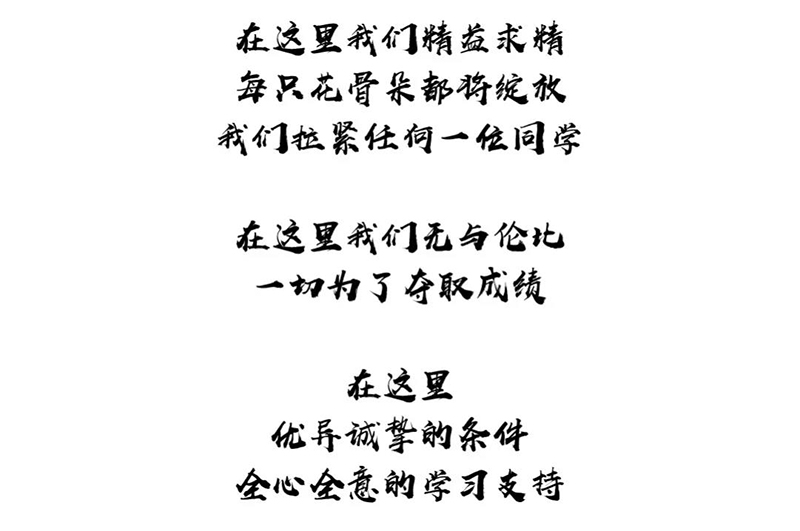 在这里我们精益求精
每只花骨朵都将绽放
我们拉紧任何一位同学
在这里我们无与伦比
一切为了夺取成绩
在这里
优异诚挚的条件
全心全意的学习支持